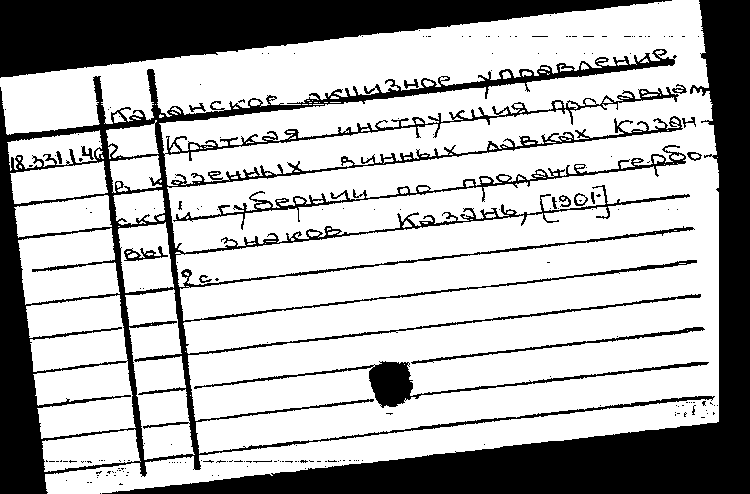 Казанское акцизное управление.
18.331.1.402 Краткая инструкция продавцам
в казенных винных лавках Казан-
ской губернии по продаже гербо-
вых знаков. Казань, [1901].
2 с.